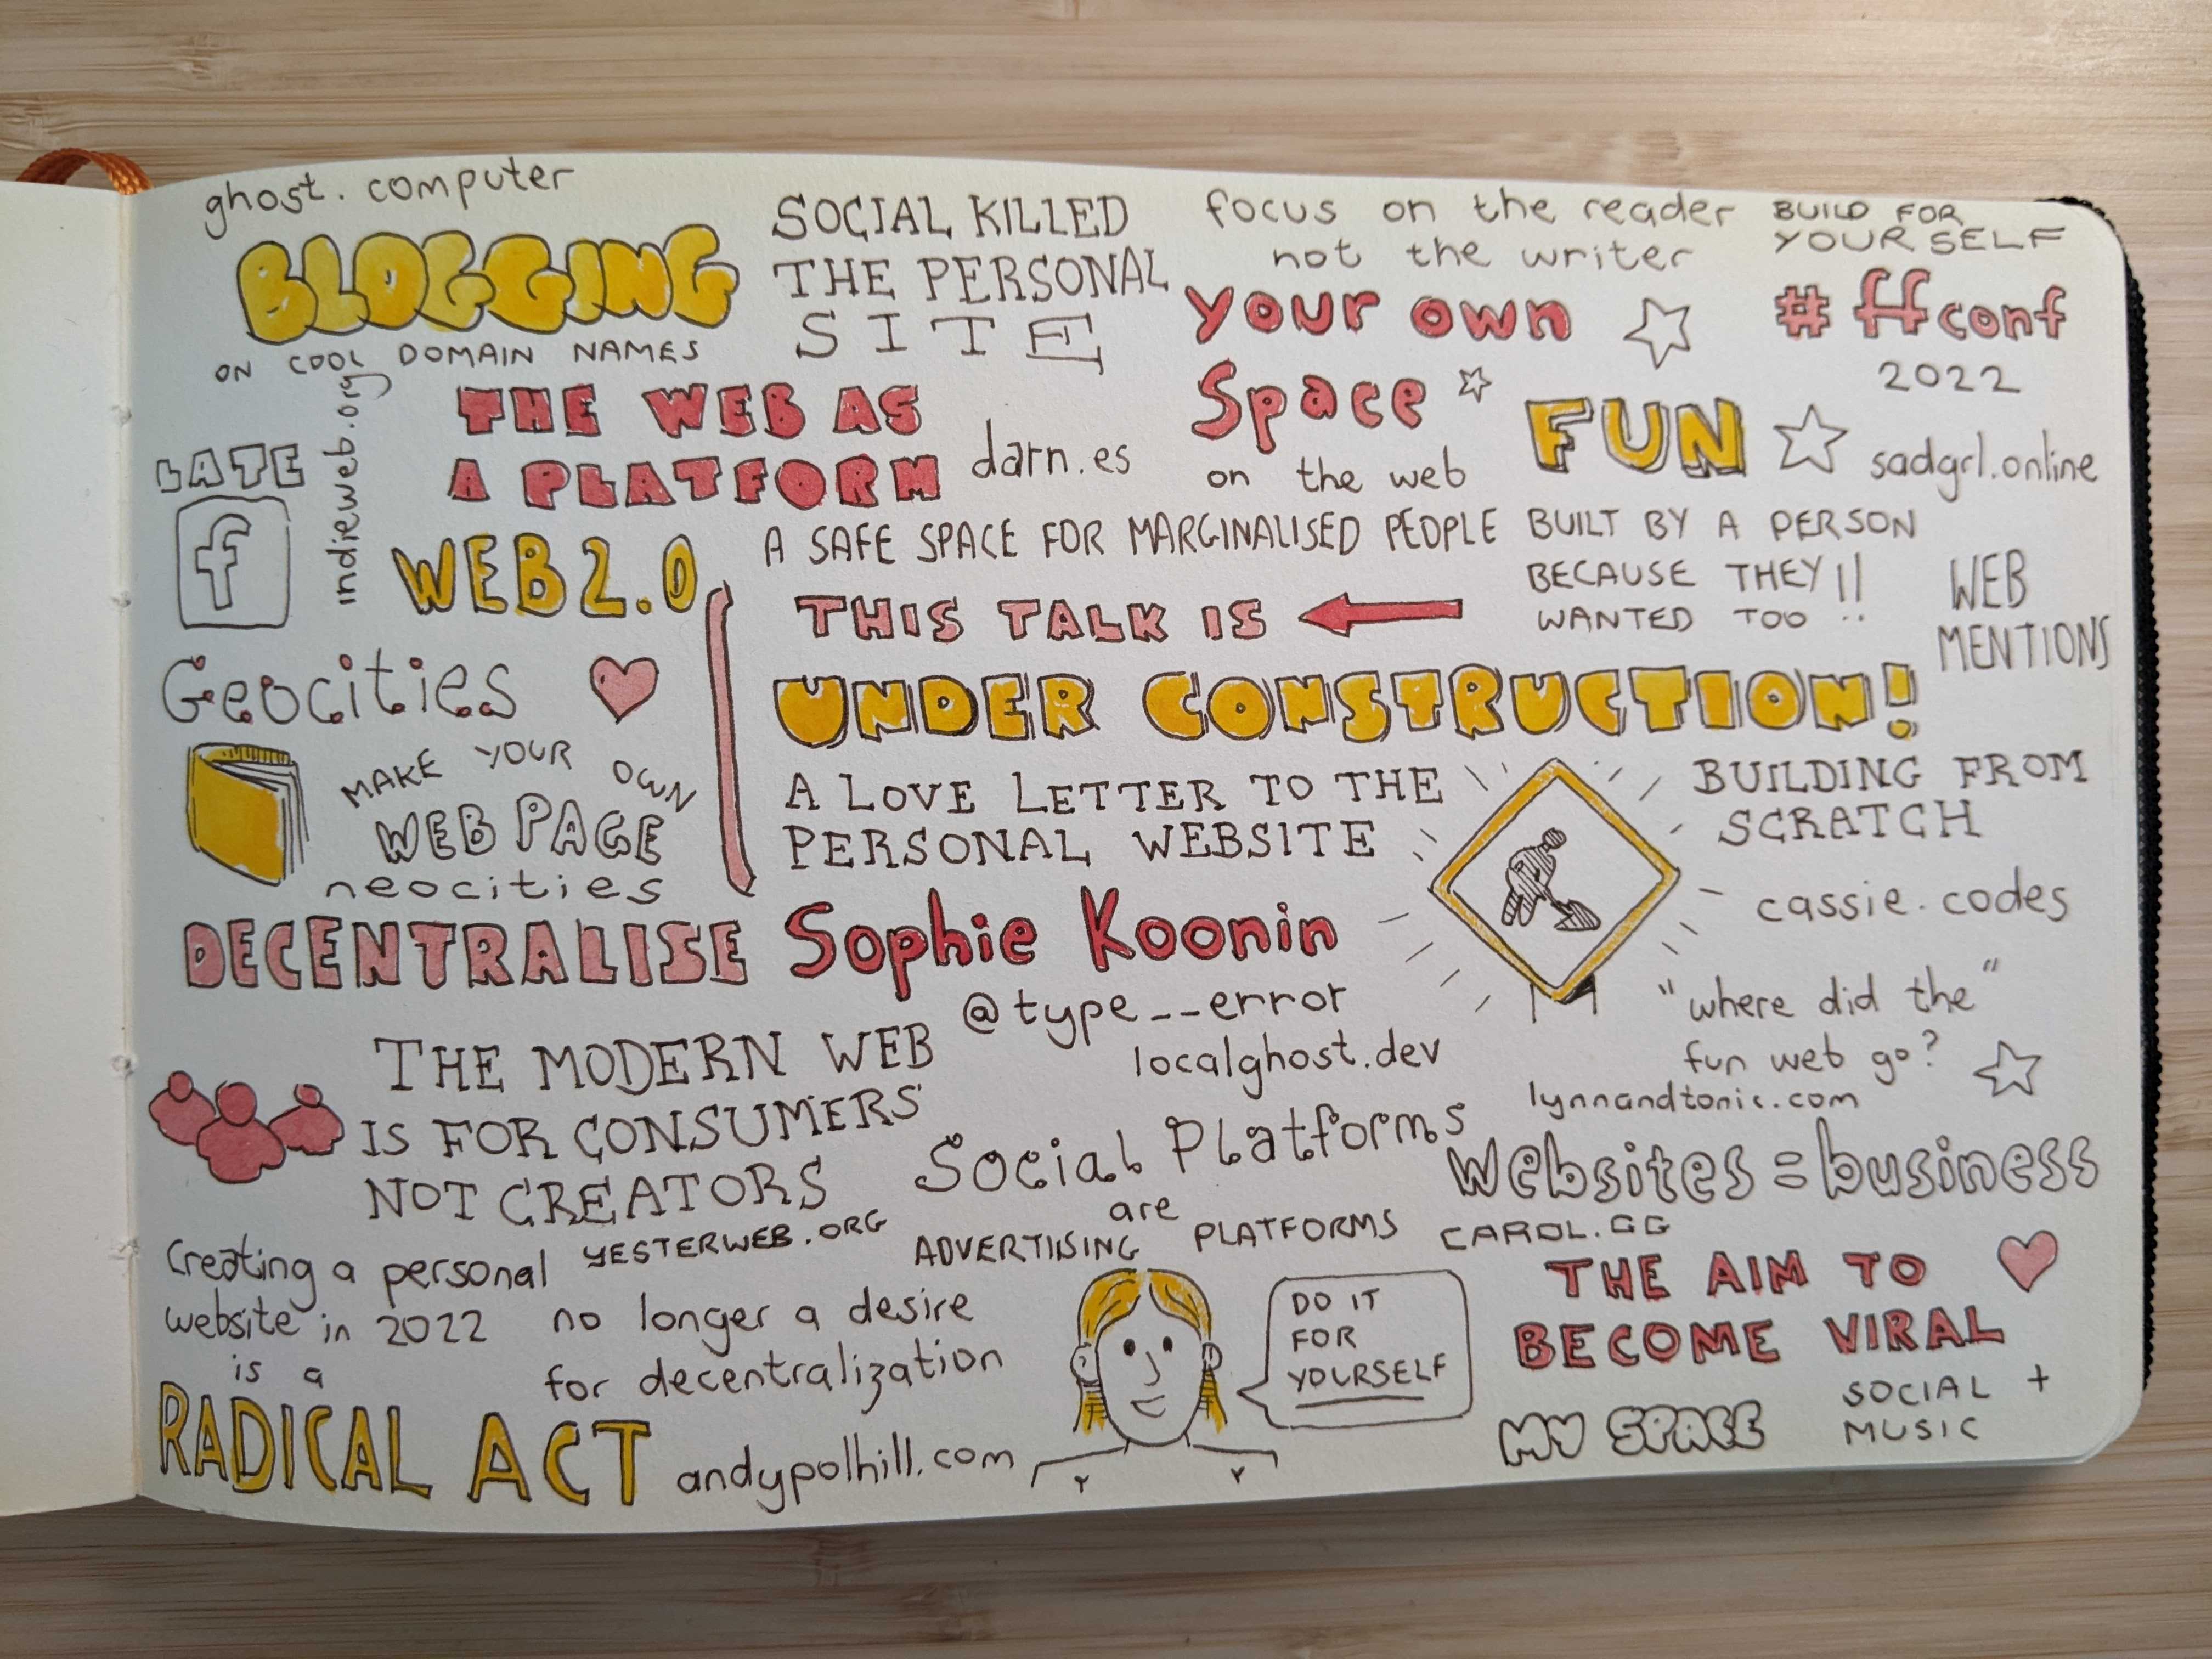 ghost.computer
BLOGGING
ON COOL DOMAIN NAMES
SOCIAL KILLED
THE PERSONAL
SITE
focus on the reader
not the writer
your own
Space
on the web
BUILD FOR
YOURSELF
#ffconf
2022
FUN
sadgrl.online
LATE
f
indieweb.org
THE WEB AS
A PLATFORM
darn.es
WEB 2.0
A SAFE SPACE FOR MARGINALISED PEOPLE
BUILT BY A PERSON
BECAUSE THEY!!
WANTED TOO
WEB
MENTIONS
THIS TALK IS
UNDER CONSTRUCTION!
A LOVE LETTER TO THE
PERSONAL WEBSITE
Sophie Koonin
@type__error
localghost.dev
Geocities
MAKE YOUR OWN
WEB PAGE
neocities
DECENTRALISE
BUILDING FROM
SCRATCH
cassie.codes
"where did the"
fun web go?
lynnandtonic.com
THE MODERN WEB
IS FOR CONSUMERS
NOT CREATORS
YESTERWEB.ORG
Social Platforms
are
ADVERTIISING PLATFORMS
Websites = business
CAROL.GG
THE AIM TO
BECOME VIRAL
Creating a personal
website in 2022
is a
RADICAL ACT
no longer a desire
for decentralization
andypolhill.com
DO IT
FOR
YOURSELF
MY SPACE
SOCIAL +
MUSIC